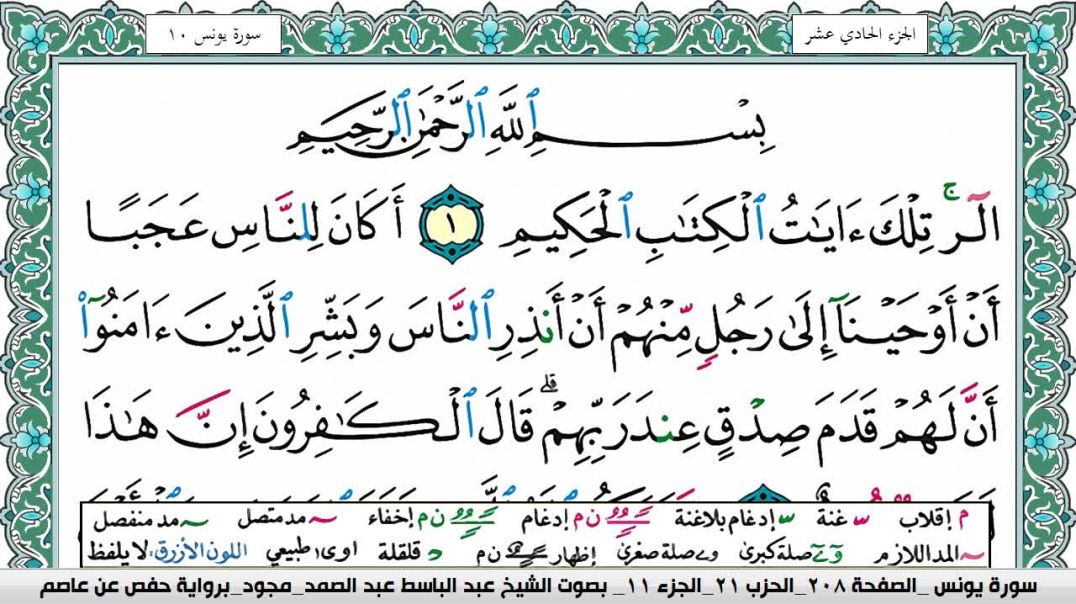 الجزء الحادي عشر
سورة يونس ١٠
بِسْمِ ٱللَّهِ ٱلرَّحْمَٰنِ ٱلرَّحِيمِ
الٓر ۚ تِلْكَ ءَايَٰتُ ٱلْكِتَٰبِ ٱلْحَكِيمِ ١ أَكَانَ لِلنَّاسِ عَجَبًا
أَنْ أَوْحَيْنَآ إِلَىٰ رَجُلٍ مِّنْهُمْ أَنْ أَنذِرِ ٱلنَّاسَ وَبَشِّرِ ٱلَّذِينَ ءَامَنُوٓا۟
أَنَّ لَهُمْ قَدَمَ صِدْقٍ عِندَ رَبِّهِمْ ۗ قَالَ ٱلْكَٰفِرُونَ إِنَّ هَٰذَا
م إقلاب غنة إدغام بلاغنة ن م إدغام ن م إخفاء مد متصل مد منفصل
المد اللازم صلة كبرى صلة صغرى إظهار ن م د قلقلة اوى طبيعي اللون الأزرق: لا يلفظ
سورة يونس _الصفحة ٢٠٨_الحزب ٢١_الجزء ١١_ بصوت الشيخ عبد الباسط عبد الصمد_مجود_برواية حفص عن عاصم